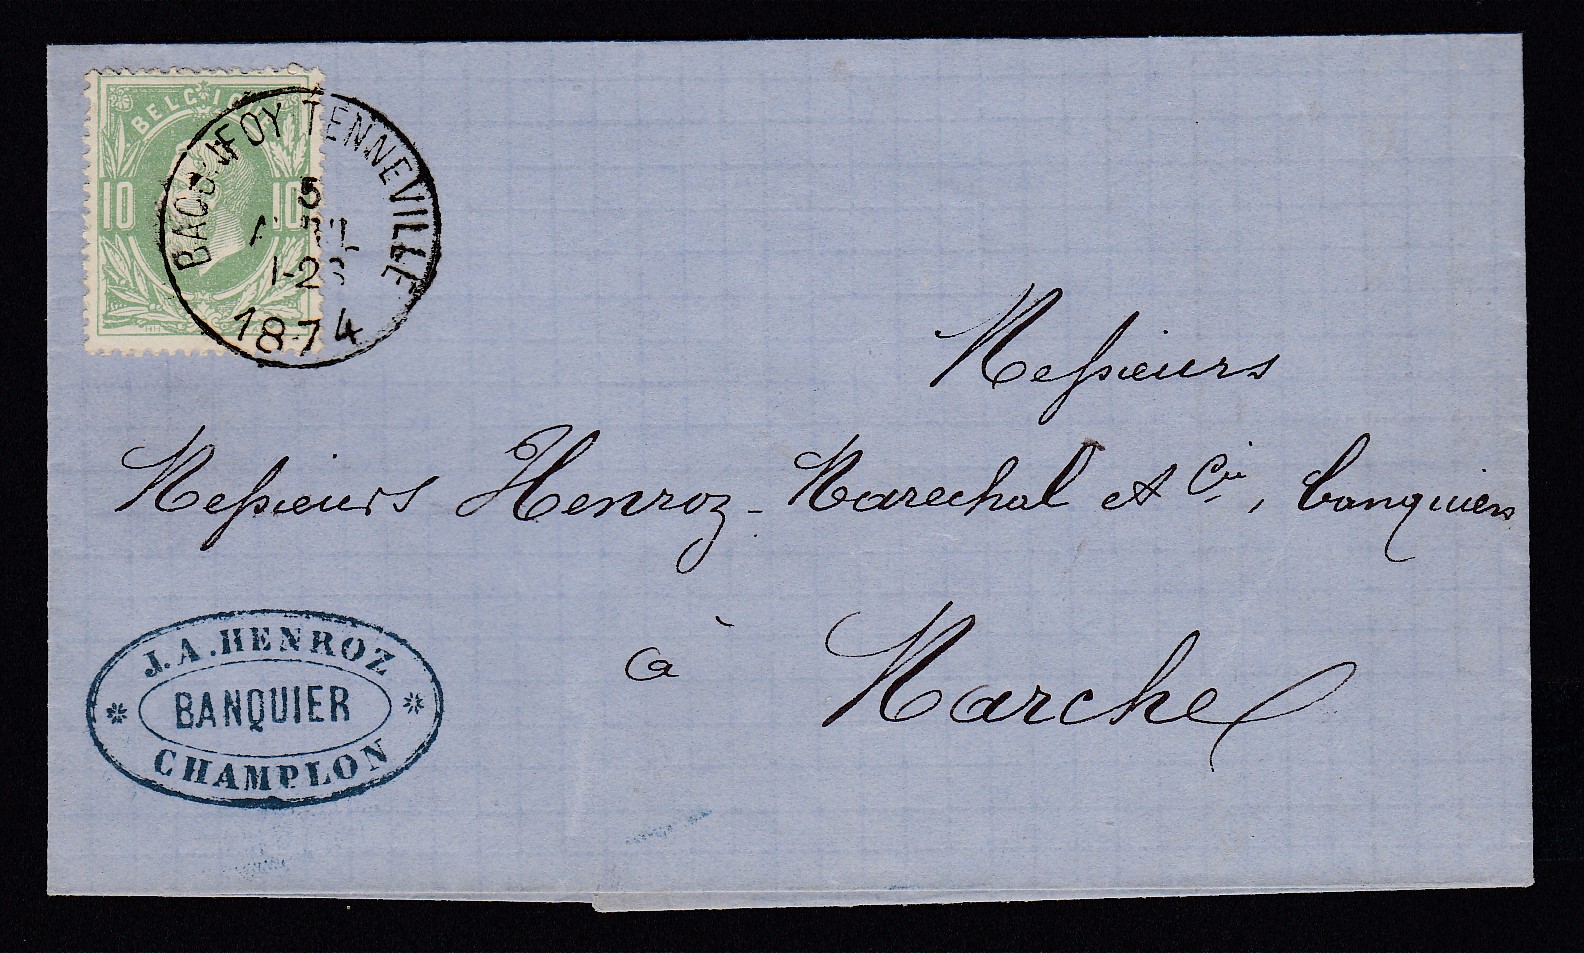 BELGIQUE
10 10
TENNEVILLE
5
1874
Messieurs
Messieurs Henroz-Marechal et Cie, banquiers
à Marche
J.A.HENROZ
BANQUIER
CHAMPLON